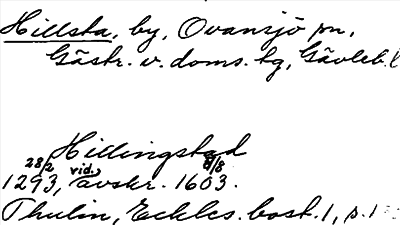 Hillsta, by, Ovansjö sn,
Gästr. v. doms. hg, Gävleb. l
Hillingstad
28/2 1293, vid. avskr. 1603 8/8.
Thulin, Eckles. bost. 1, s. 1